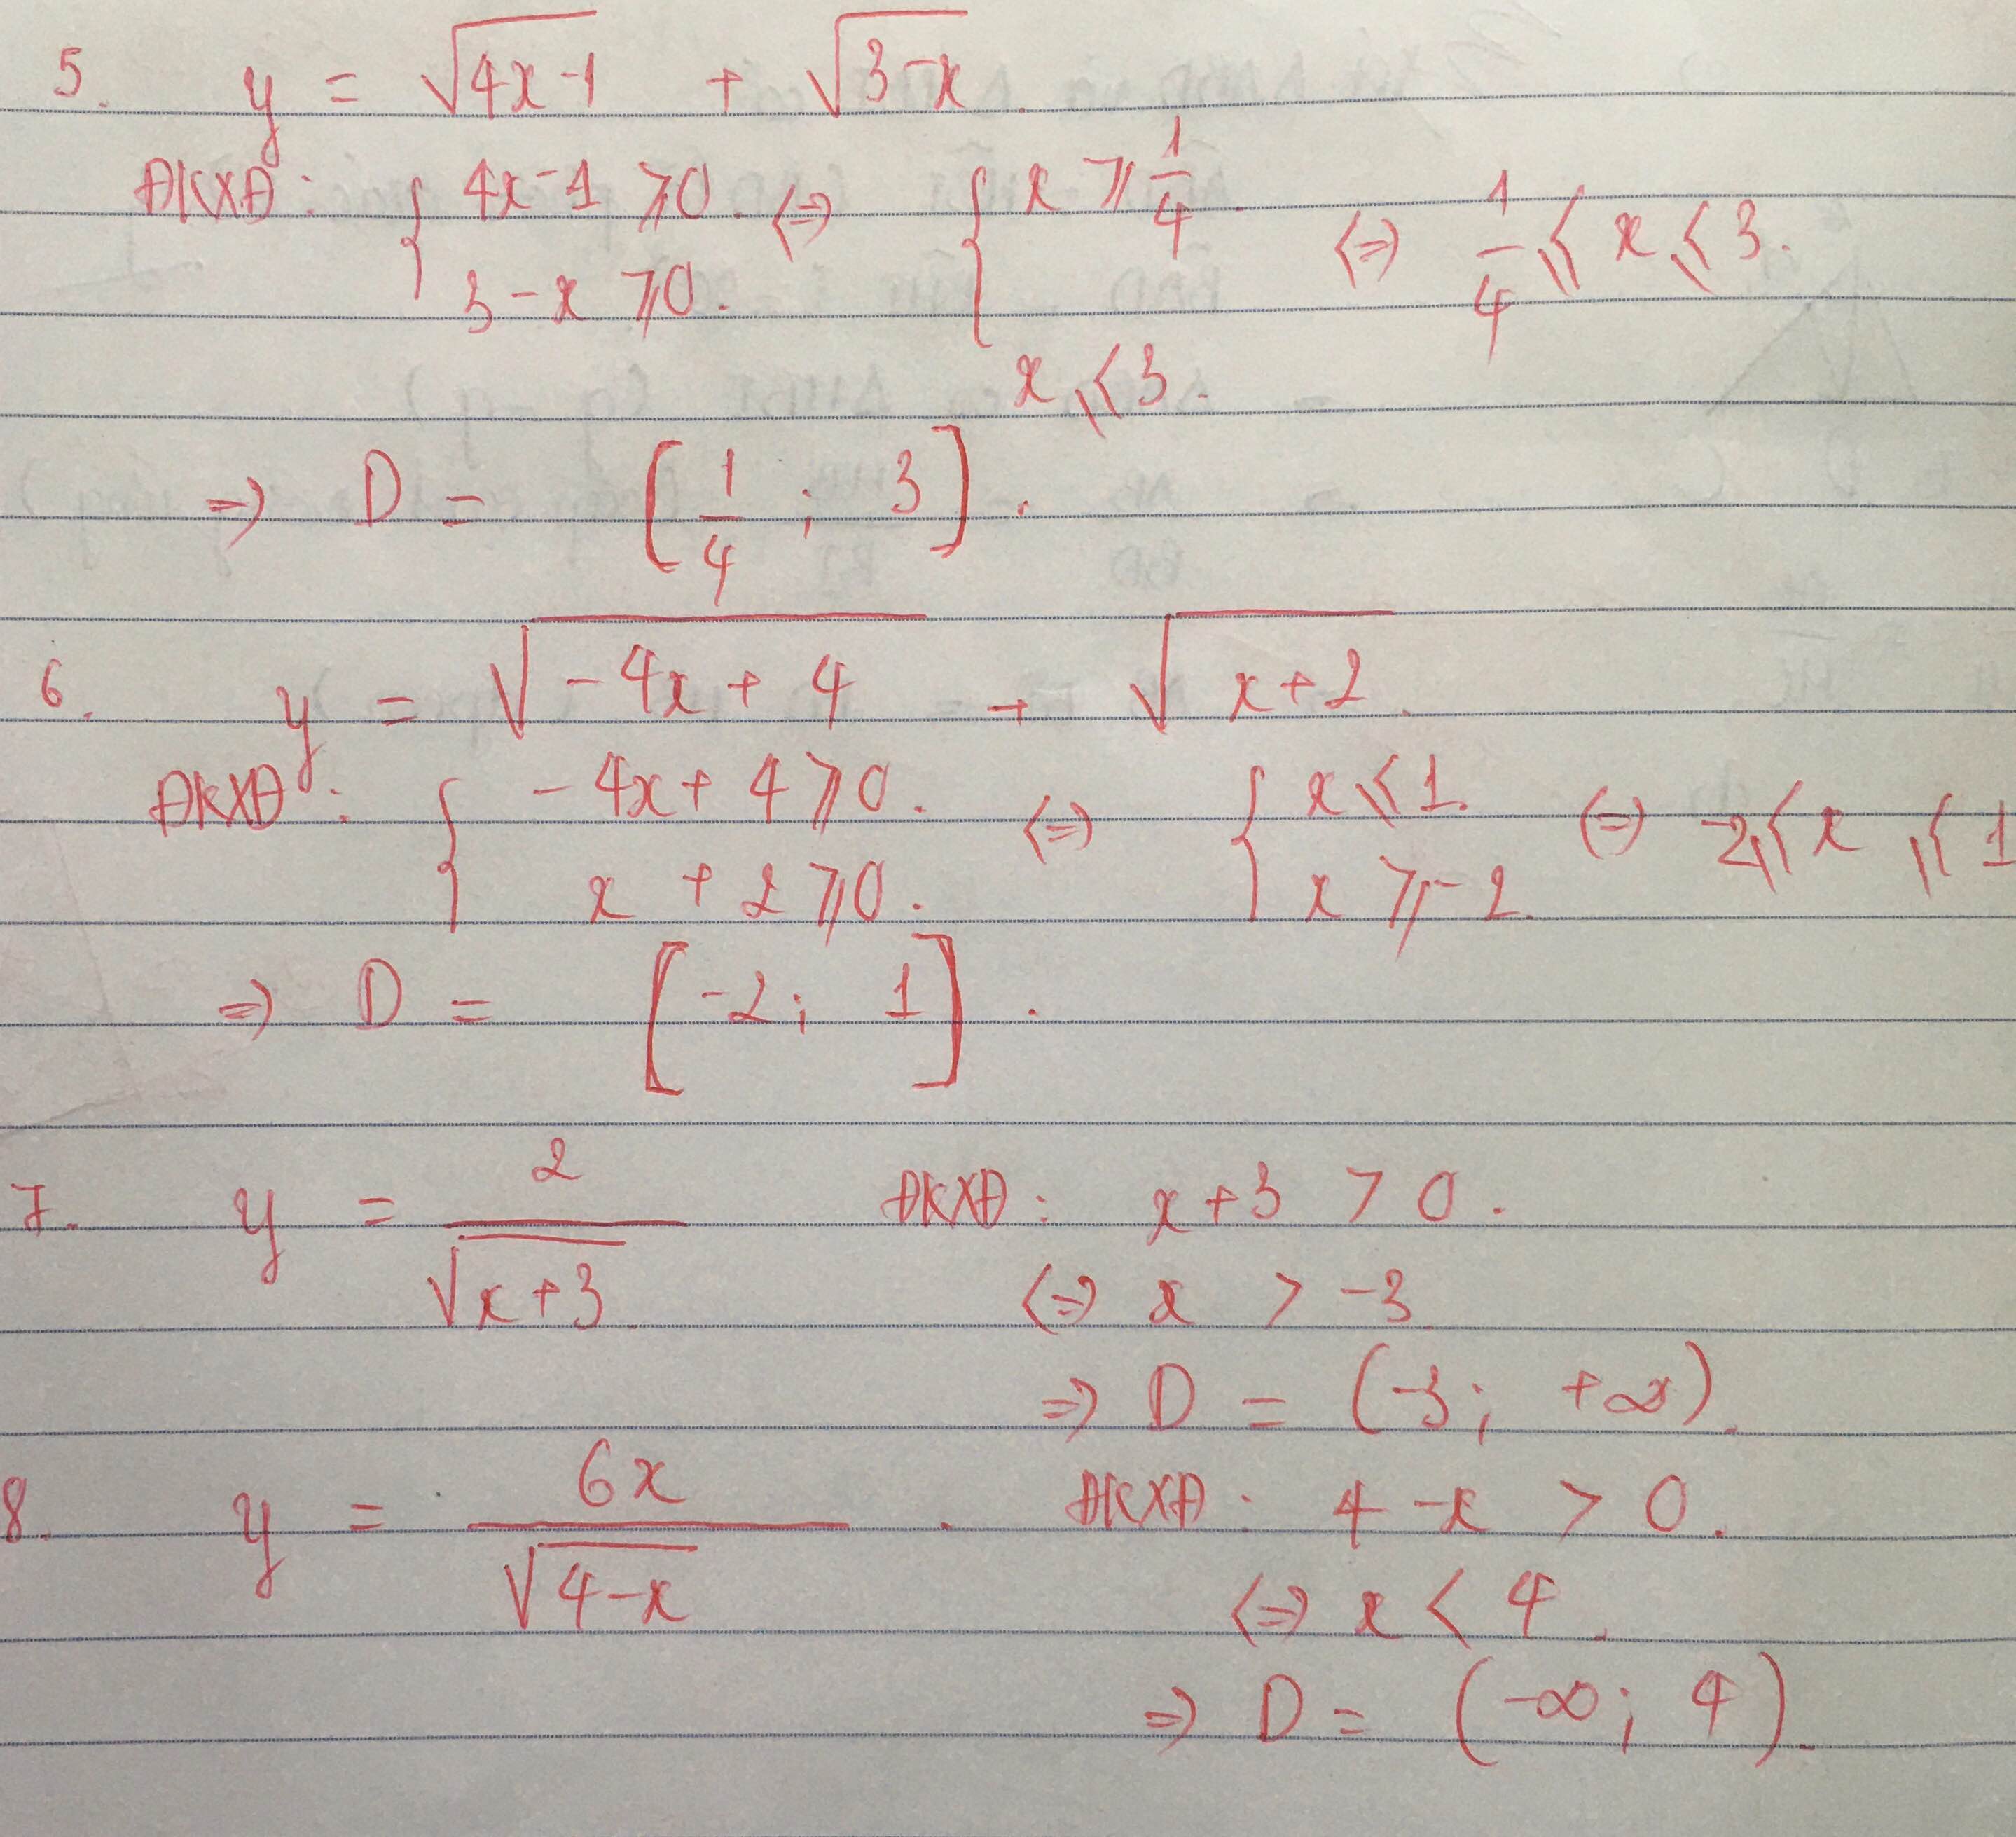 5. y = √(4x-1) + √(3-x).
ĐKXĐ: { 4x-1 ⩾ 0. ⇔ { x ⩾ 1/4. ⇔ 1/4 ⩽ x ⩽ 3.
3-x ⩾ 0. x ⩽ 3.
⇒ D = [1/4 ; 3].
6. y = √(-4x+4) + √(x+2).
ĐKXĐ: { -4x+4 ⩾ 0. ⇔ { x ⩽ 1. ⇔ -2 ⩽ x ⩽ 1
x + 2 ⩾ 0. x ⩾ -2.
⇒ D = [-2; 1].
7. y = 2/√(x+3). ĐKXĐ: x+3 > 0.
⇔ x > -3.
⇒ D = (-3; +∞).
8. y = 6x/√(4-x). ĐKXĐ: 4-x > 0.
⇔ x < 4.
⇒ D = (-∞; 4).